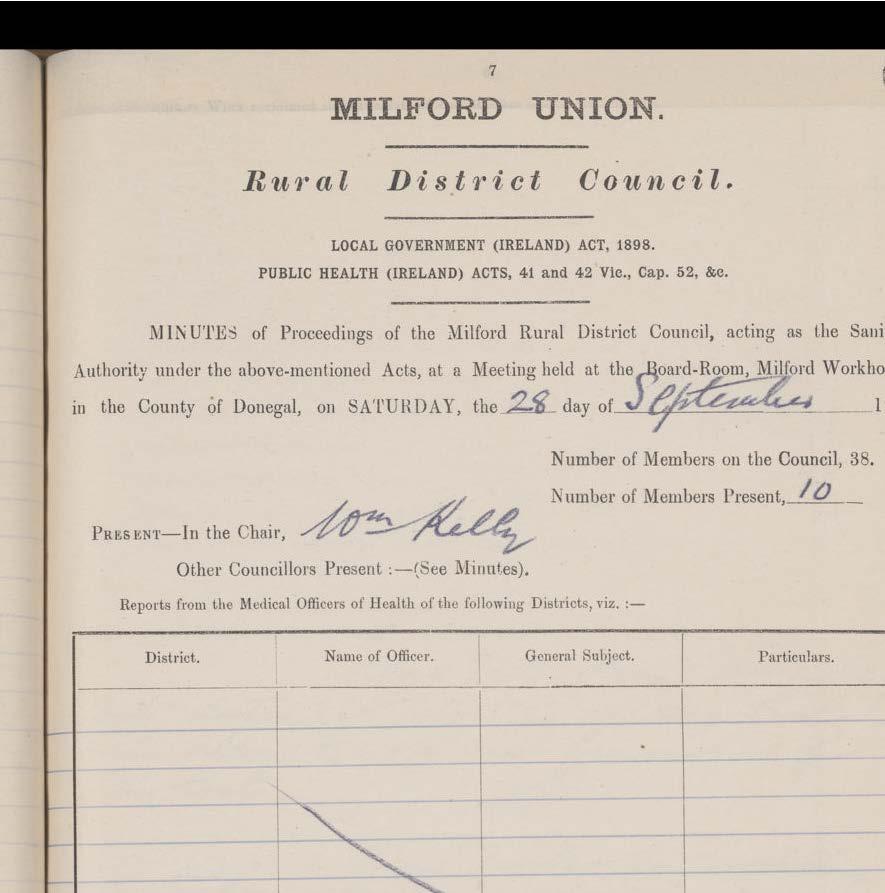 7
MILFORD UNION.
Rural District Council.
LOCAL GOVERNMENT (IRELAND) ACT, 1898.
PUBLIC HEALTH (IRELAND) ACTS, 41 and 42 Vic., Cap. 52, &c.
MINUTES of Proceedings of the Milford Rural District Council, acting as the Sani
Authority under the above-mentioned Acts, at a Meeting held at the Board-Room, Milford Workho
in the County of Donegal, on SATURDAY, the 28 day of September 1
Number of Members on the Council, 38.
Number of Members Present, 10
PRESENT—In the Chair, Wm Kelly
Other Councillors Present :—(See Minutes).
Reports from the Medical Officers of Health of the following Districts, viz. :—
District. Name of Officer. General Subject. Particulars.